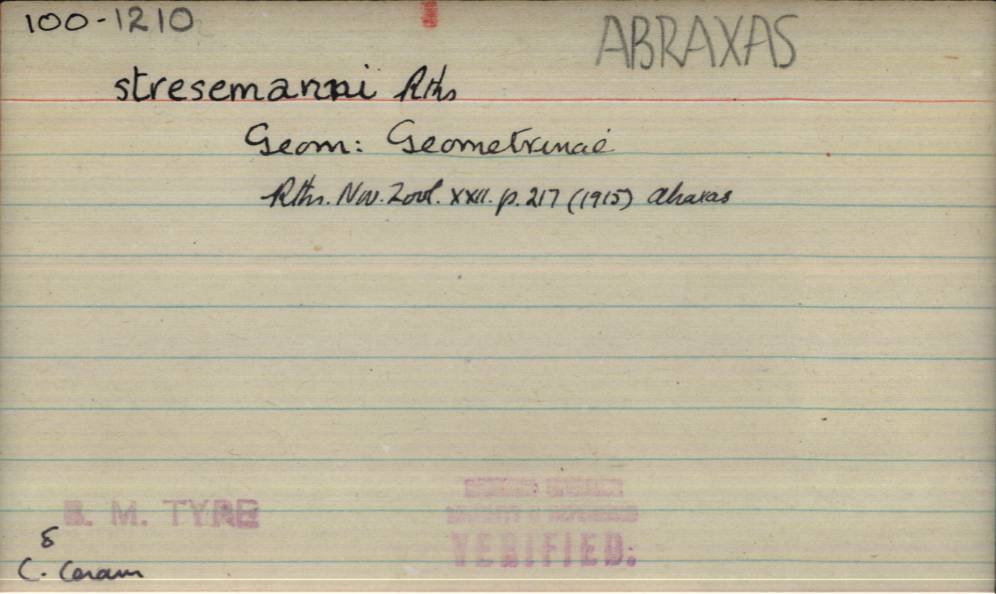 100-1210
ABRAXAS
stresemanni Rths
Geom: Geometrinae
Rths. Nov. Zool. XXII. p. 217 (1915) Abraxas
B. M. TYPE
VERIFIED.
C. Ceram